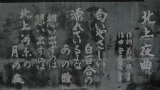 北上夜曲
匂い優しい
白百合の
濡れているよな
あの瞳
想い出すのは
想い出すのは
北上河原の
月の夜